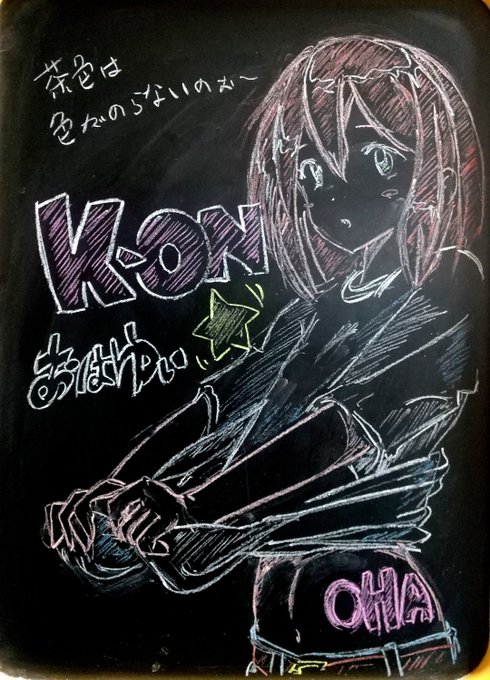 茶色は
色がのらないのむ〜
K-ON
おはゆい
OHA